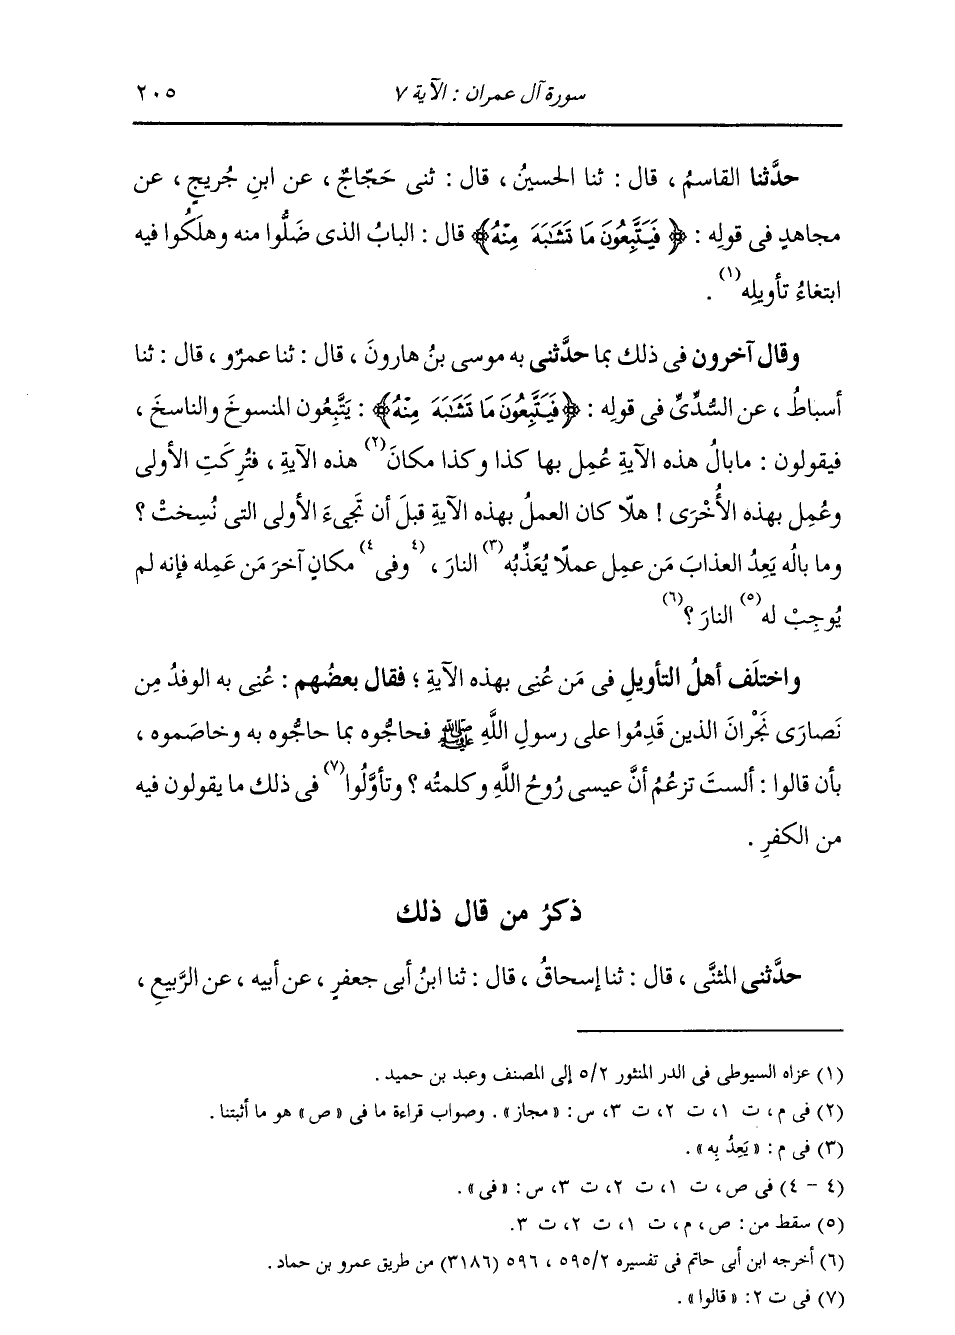 سورة آل عمران : الآية ٧
٢٠٥
حدَّثنا القاسمُ ، قال : ثنا الحسينُ ، قال : ثنى حَجّاجٌ ، عن ابنِ جُريجٍ ، عن
مجاهدٍ فى قولِه : ﴿ فَيَتَّبِعُونَ مَا تَشَٰبَهَ مِنْهُ ﴾ قال : البابُ الذى ضَلُّوا منه وهلَكُوا فيه
ابتغاءُ تأويلِه(١) .
وقال آخرون فى ذلك بما حدَّثنى به موسى بنُ هارونَ ، قال : ثنا عمرٌو ، قال : ثنا
أسباطُ ، عن السُّدِّىِّ فى قولِه : ﴿ فَيَتَّبِعُونَ مَا تَشَٰبَهَ مِنْهُ ﴾ : يَتَّبِعُون المنسوخَ والناسخَ ،
فيقولون : مابالُ هذه الآيةِ عُمِل بها كذا وكذا مكانَ(٢) هذه الآيةِ ، فتُرِكَتِ الأولى
وعُمِل بهذه الأُخْرَى ! هلّا كان العملُ بهذه الآيةِ قبلَ أن تَجىءَ الأولى التى نُسِختْ ؟
وما بالُه يَعِدُ العذابَ مَن عمِل عملًا يُعَذِّبُه(٣) النارَ ، (٤ وفى ٤) مكانٍ آخرَ مَن عَمِله فإنه لم
يُوجِبْ له(٥) النارَ ؟(٦)
واختلَف أهلُ التأويلِ فى مَن عُنِى بهذه الآيةِ ؛ فقال بعضُهم : عُنِى به الوفدُ مِن
نَصارَى نَجْرانَ الذين قَدِمُوا على رسولِ اللَّهِ ﷺ فحاجُّوه بما حاجُّوه به وخاصَموه ،
بأن قالوا : ألستَ تزعُمُ أنَّ عيسى رُوحُ اللَّهِ وكلمتُه ؟ وتأوَّلُوا(٧) فى ذلك ما يقولون فيه
من الكفرِ .
ذكرُ من قال ذلك
حدَّثنى المثنَّى ، قال : ثنا إسحاقُ ، قال : ثنا ابنُ أبى جعفرٍ ، عن أبيه ، عن الرَّبيعِ ،
(١) عزاه السيوطى فى الدر المنثور ٥/٢ إلى المصنف وعبد بن حميد .
(٢) فى م ، ت ١، ت ٢، ت ٣، س : « مجاز » . وصواب قراءة ما فى « ص » هو ما أثبتنا .
(٣) فى م : « يَعِدُ به » .
(٤ - ٤) فى ص ، ت ١، ت ٢، ت ٣، س : « فى » .
(٥) سقط من : ص ، م ، ت ١، ت ٢، ت ٣.
(٦) أخرجه ابن أبى حاتم فى تفسيره ٥٩٥/٢ ، ٥٩٦ (٣١٨٦) من طريق عمرو بن حماد .
(٧) فى ت ٢: « قالوا » .